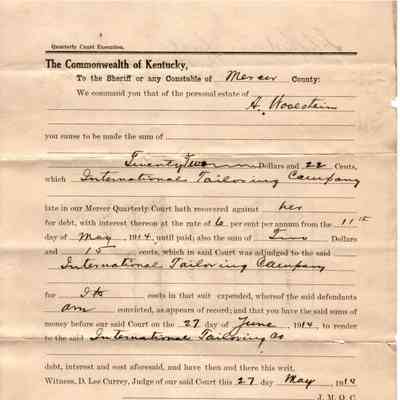 Quarterly Court Execution.
The Commonwealth of Kentucky,
To the Sheriff or any Constable of Mercer County:
We command you that of the personal estate of
A. Woolstein
you cause to be made the sum of
Twenty Two Dollars and 22 Cents,
which International Tailoring Company
late in our Mercer Quarterly Court hath recovered against her
for debt, with interest thereon at the rate of 6 per cent per annum from the 11th
day of May 1914 until paid; also the sum of Two Dollars
and 15 cents, which in said Court was adjudged to the said
International Tailoring Company
for Its costs in that suit expended, whereof the said defendants
am convicted, as appears of record; and that you have the said sums of
money before our said Court on the 27 day of June 1914, to render
to the said International Tailoring Co
debt, interest and cost aforesaid, and have then and there this writ.
Witness, D. Lee Currey, Judge of our said Court this 27 day May 1914
J. M. Q. C.